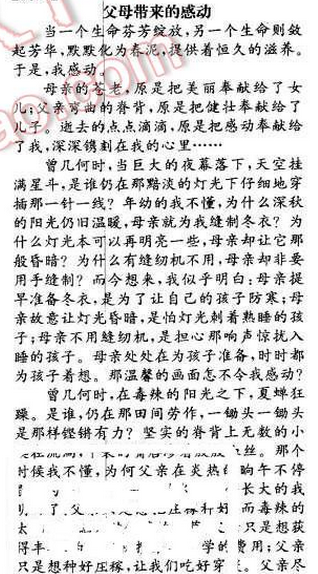 父母带来的感动
当一个生命芬芳绽放,另一个生命则敛
起芳华,默默化为春泥,提供着恒久的滋养。
于是,我感动。
母亲的苍老,原是把美丽奉献给了女
儿;父亲弯曲的脊背,原是把健壮奉献给了
儿子。逝去的点点滴滴,原是把感动奉献给
了我,深深镌刻在我的心里……
曾几何时,当巨大的夜幕落下,天空挂
满星斗,是谁仍在那黯淡的灯光下仔细地穿
插那一针一线?年幼的我不懂,为什么深秋
的阳光仍旧温暖,母亲就为我缝制冬衣?为
什么灯光本可以再明亮一些,母亲却让它那
般昏暗?为什么有缝纫机不用,母亲却非要
用手缝制?而今想来,我似乎明白:母亲提
早准备冬衣,是为了让自己的孩子防寒;母
亲故意让灯光昏暗,是怕灯光刺着熟睡的孩
子;母亲不用缝纫机,是担心那响声惊扰入
睡的孩子。母亲处处在为孩子准备,时时都
为孩子着想。那温馨的画面怎不令我感动?
曾几何时,在毒辣的阳光之下,夏蝉狂
躁。是谁,仍在那田间劳作,一锄头一锄头
是那样铿锵有力?坚实的脊背上无数的小
丝。那个
时候我不懂,为何父亲在炎热的晌午不停
长大的我
父 庄稼种好 而毒辣的
太 只是想获
得丰 学的费用;父亲
只是想种好庄稼,让我们吃好穿 。父亲尽